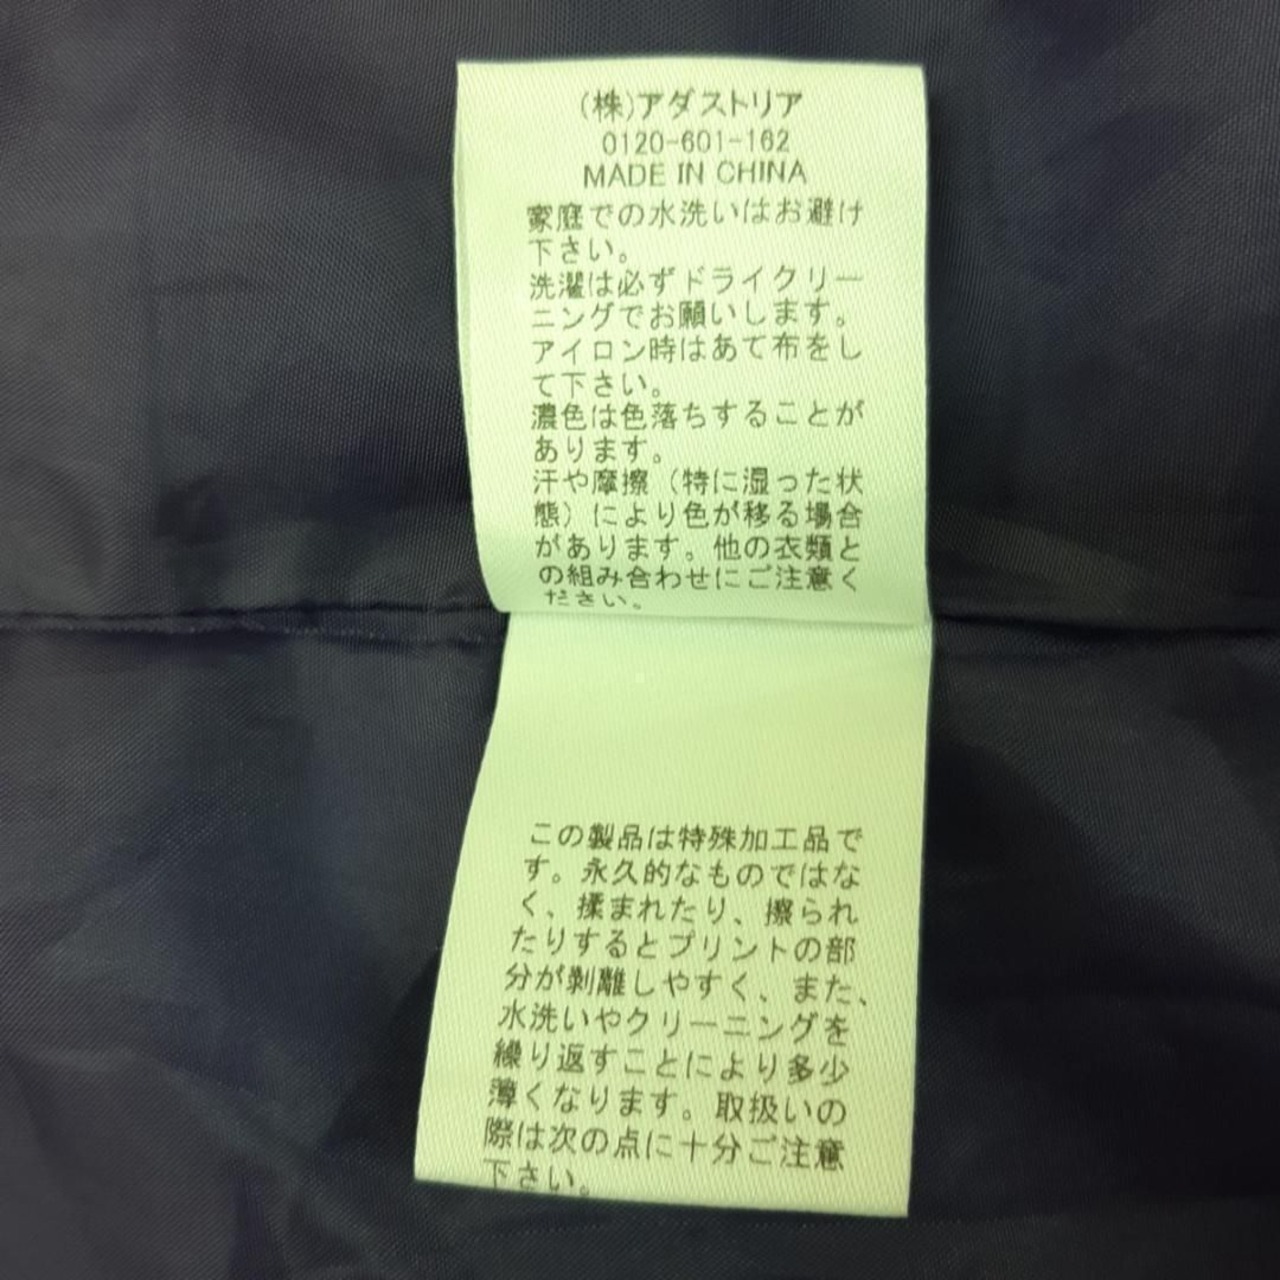 (株)アダストリア
0120-601-162
MADE IN CHINA
家庭での水洗いはお避け
下さい。
洗濯は必ずドライクリー
ニングでお願いします。
アイロン時はあて布をし
て下さい。
濃色は色落ちすることが
あります。
汗や摩擦（特に湿った状
態）により色が移る場合
があります。他の衣類と
の組み合わせにご注意く
ださい。
この製品は特殊加工品で
す。永久的なものではな
く、揉まれたり、擦られ
たりするとプリントの部
分が剥離しやすく、また、
水洗いやクリーニングを
繰り返すことにより多少
薄くなります。取扱いの
際は次の点に十分ご注意
下さい。